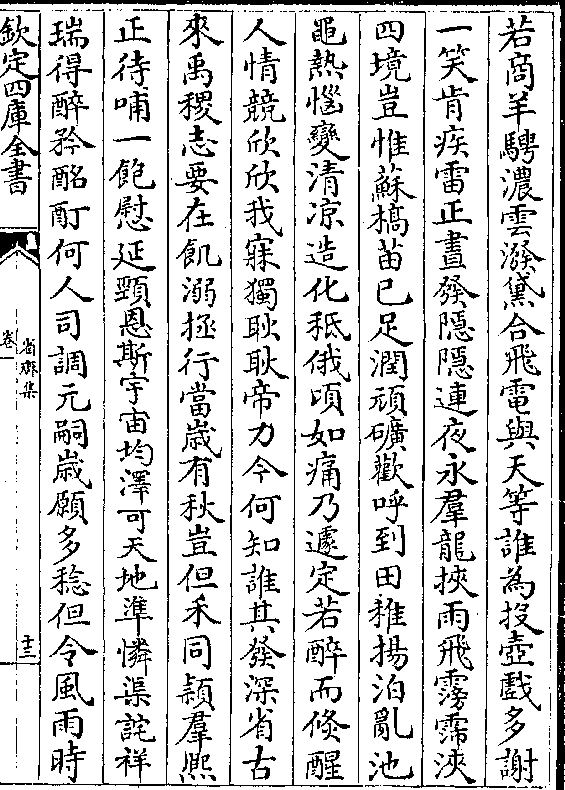 若商羊騁濃雲潑黛合飛電與天等誰為投壺戲多謝
一笑肯疾雷正晝發隱隱連夜永羣龍挾雨飛霧霈浹
四境豈惟蘇槁苗已足潤頑礦歡呼到田稚揚泊亂池
黽熱惱變清涼造化秪俄頃如痛乃遽定若醉而倐醒
人情競欣欣我寐獨耿耿帝力今何知誰其發深省古
來禹稷志要在飢溺拯行當歳有秋豈但禾同潁羣熙
正待哺一飽慰延頸恩斯宇宙均澤可天地準憐渠詫祥
瑞得醉矜酩酊何人司調元嗣歳願多稔但令風雨時
欽定四庫全書
省齋集
卷一
十三